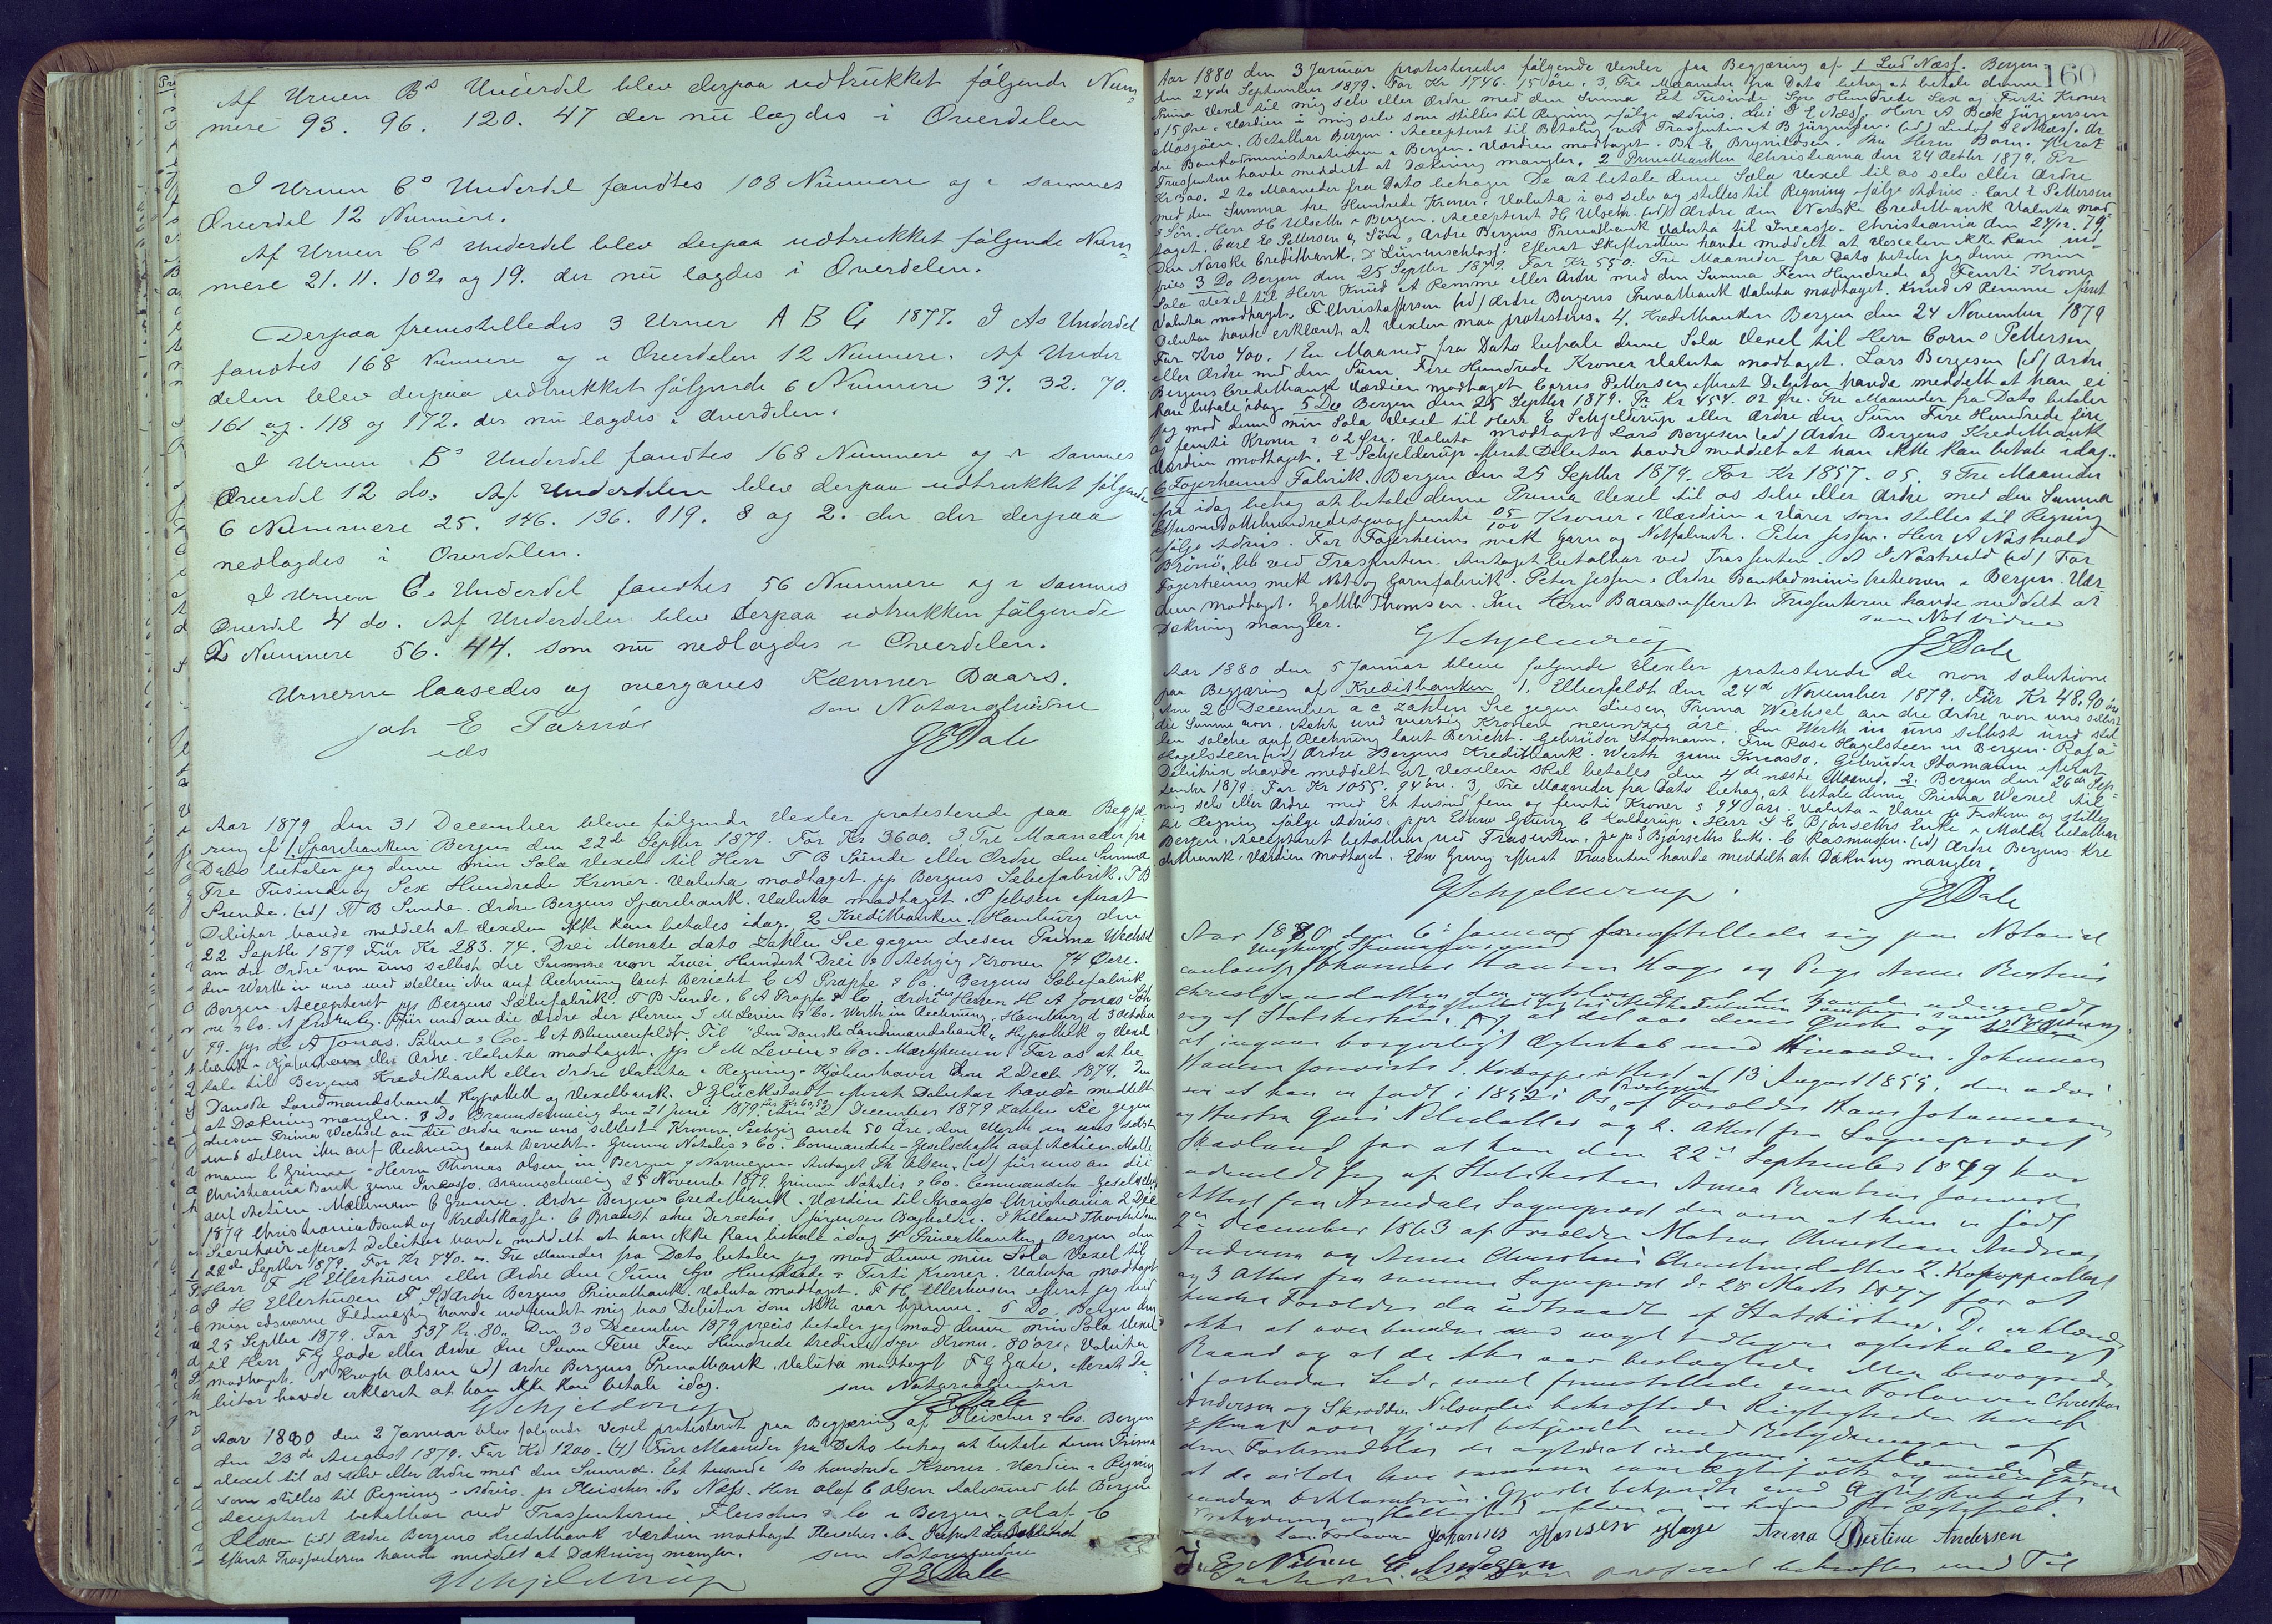 Af Urnen Bs Underdel blev derpaa udtrukket følgende Num-
mere 93. 96. 120. 47 der nu lagdes i Overdelen
I Urnen Cs Underdel fandtes 108 Numere og i sammes
Overdel 12 Numere.
Af Urnen Cs Underdel blev derpaa udtrukket følgende Num-
mere 21. 11. 102 og 19. der nu lagdes i Overdelen.
Derpaa fremstilledes 3 Urner A B C 1877. I As Underdel
fandtes 168 Numere og i Overdelen 12 Numere. Af Under
delen blev derpaa udtrukket følgende 6 Numere 37. 32. 70.
161 og 118 og 172. der nu lagdes i Overdelen.
I Urnen Bs Underdel fandtes 168 Numere og i sammes
Overdel 12 do. Af Underdelen blev derpaa udtrukket følgende
6 Nummere 25. 146. 136. 119. 8 og 2. der der derpaa
nedlagdes i Overdelen.
I Urnen C. Underdel fandtes 56 Numere og i sammes
Overdel 4 do. Af Underdelen blev derpaa udtrukken følgende
2 Numere 56. 44. som nu nedlagdes i Overdelen.
Urnerne laasedes og overgaves Kæmner Baars.
som Notarialvidne
Joh E
JEDale
Aar 1879 den 31 December bleve følgende Vexler protesterede paa Begjæ
ring af 1. Sparebanken Bergen den 22de Septbr 1879. For Kr 3600. 3 Tre Maaneder fra
Dato betaler jeg denne min Sola Vexel til Herr T B Sunde eller Ordre den Summa
Tre Tusinde og Sex Hundrede Kroner. Valuta modtaget. pp Bergens Sæbefabrik. T B
Sunde. (ud) T B Sunde. Ordre Bergens Sparebank. Valuta modtaget. P Jebsen efterat
Debitor havde meddelt at Vexelen ikke kan betales idag. 2 Kreditbanken. Hamburg den
22 Septbr 1879 Für Kr 283. 74. Drei Monate dato zahlen Sie gegen diesen Prima Wechsel
an die Ordre von uns selbst die Summe von Zwei Hundert Drei & Achtzig Kronen 74 Øere.
den Werth in uns und stellen ihn auf Rechnung laut Bericht C A Prapfe & Co. Bergens Sæbefabrik
Bergen. Accepteret pps Bergens Sæbefabrik. T B Sunde. C A Prapfe & Co. Ordre der Herren H A Jonas Söh
ne & Co. Für uns an die Ordre der Herren J M Levin & Co. Werth in Rechnung. Hamburg d 3 October
79. pps H A Jonas Söhne & Co. C A Blumenfeldt. Til "den Danske Landmandsbank, Hypothek og Vexel
bank" i Kjøbenhavn eller Ordre. Valuta modtaget. pps J M Levin & Co. For os at be
tale til Bergens Kreditbank eller Ordre Valuta i Regning. Kjøbenhavn den 2 Decb 1879. Den
Danske Landmandsbank Hypothek og Vexelbank. I Glückstadt efterat Debitor havde meddelt
at Dækning mangler. 3 Do Braunschweig den 21 Juni 1879. December 1879 zahlen Sie gegen
diesen Prima Wechsel an die Ordre von uns selbst Kronen Sechzig auch 50 Øre. den Werth in uns selbst
und stellen ihn auf Rechnung laut Bericht. Grimme Natalis & Co. Commandite-Gesellschaft auf Actien. Mølle
mann C Grimme. Herrn Thomas Olsen in Bergen Norwegen. Antaget Th Olsen. (ud) für uns an die
Christiania Bank zum Incasso. Braunschweig 25 Novembr 1879. Grimme Natalis & Co. Commandite-Gesellschaft
auf Actien. Møllemann C Grimme. Ordre Bergens Creditbank. Værdien til Incasso Christiania 2 Dec
1879 Christiania Bank og Kreditkasse. Jørgensen Bogholder.
efterat Debitor havde meddelt at han ikke kan betale idag. 4 Privatbanken Bergen den
22de Septbr 1879. For Kr 740. Tre Maaneder fra Dato betaler jeg mod denne min Sola Vexel til
Herr F H Ellerhusen eller Ordre den Sum Syv Hundrede & Førti Kroner. Valuta modtaget
Ordre Bergens Privatbank. Valuta modtaget. F H Ellerhusen efterat jeg ved
min edsvorne Fuldmægtig havde indfundet mig hos Debitor som ikke var hjemme. 5 Do. Bergen den
25 Septbr 1879. For 537 Kr. 80. Den 30 December 1879 præcis betaler jeg mod denne min Sola Vexel
til Herr F G Gade eller Ordre den Sum Fem Hundrede tredive syv Kroner. 80 øre. Valuta
modtaget. N Krogh Olsen (ud) Ordre Bergens Privatbank. Valuta modtaget F G Gade. efterat De
bitor havde erklæret at han ikke kan betale idag.
som Notarialvidne
GSchjelderup JEDale
Aar 1880 den 2 Januar blev følgende Vexel protesteret paa Begjæring af Fleischer & Co. Bergen
den 23de August 1879. For Kr 1200. (4) Fire Maaneder fra Dato behag at betale denne Prima
Vexel til os selv eller Ordre med den Summa. Et tusinde to hundrede Kroner. Værdien i Regning
som stilles til Regning Advis. pr Fleischer & Co. Næss. Herr Olaf C Olsen Aalesund bet. Bergen
Accepteret betalbar ved Trassenterne Fleischer & Co i Bergen. Olaf C
Olsen (ud) Ordre Bergens Kreditbank Værdien modtaget Fleischer & Co.
Efterat Trassenterne havde meddelt at Dækning mangler. som Notarialvidne
GSchjelderup JEDale
160
Aar 1880 den 3 Januar protesteredes følgende Vexler paa Begjæring af 1 Lud Næss. Bergen
den 24de September 1879. For Kr 1746. 15 øre. 3, Tre Maaneder fra Dato behag at betale denne
Prima Vexel til mig selv eller Ordre med den Summa Et Tusinde Syv Hundrede Sex og Førti Kroner
& 15 Øre. Værdien i mig selv som stilles til Regning ifølge Advis. Herr A Beck Jürgensen
Mosjöen. Betalbar Bergen. Accepteret til Betaling ved Trassenten A B Jürgensen. (ud) Ludvf Næss. Or
dre Bankadministrationen i Bergen. Værdien modtaget. Br E Brynildsen. Efterat
Trassenten havde meddelt at Dækning mangler. 2 Privatbanken Christiania den 24 Octbr 1879. Pr
Kr 300. 2 to Maaneder fra Dato behager De at betale denne Sola Vexel til os selv eller Ordre
med den Summa tre Hundrede Kroner. Valuta i os selv og stilles til Regning ifølge Advis. Carl E Pettersen
& Søn. Herr H Ulseth i Bergen. Accepteret H Ulseth. (ud) Ordre den Norske Creditbank Valuta mod
taget. Carl E Pettersen og Søn. Ordre Bergens Privatbank Valuta til Incasso. Christiania den 24/12. 79.
Den Norske Creditbank. Efterat Skifteretten havde meddelt at Vexelen ikke kan ind
fries 3 Do Bergen den 25 Septbr 1879. For Kr 550. Tre Maaneder fra Dato betaler jeg denne min
Sola Vexel til Herr Knud A Remme eller Ordre med den Summa Fem Hundrede og Femti Kroner
Valuta modtaget. F Christoffersen (ud) Ordre Bergens Privatbank Valuta modtaget. Knud A Remme efterat
Debitor havde erklæret at Vexlen maa protesteres. 4. Kreditbanken Bergen den 24 November 1879
For Kro 400. 1 En Maaned fra Dato betale denne Sola Vexel til Herr Corns Pettersen
eller Ordre med den Sum. Fire Hundrede Kroner Valuta modtaget. Lars Bergesen (ud) Ordre
Bergens Creditbank Værdien modtaget Corns Pettersen efterat Debitor havde meddelt at han ei
kan betale idag. 5 Do Bergen den 25 Septbr 1879. Pr Kr 454. 02 Øre. Tre Maaneder fra Dato betaler
jeg mod denne min Sola Vexel til Herr E Schjelderup eller Ordre den Sum Fire Hundrede fire
og femti Kroner & 02 Øre. Valuta modtaget Lars Bergesen (ud) Ordre Bergens Kreditbank
Værdien modtaget. E Schjelderup efterat Debitor havde meddelt at han ikke kan betale idag.
6 Fagerheims Fabrik. Bergen den 25 Septbr 1879. For Kr 1857. 05. 3 Tre Maaneder
fra idag behag at betale denne Prima Vexel til os selv eller Ordre med den Summa
Ettusindottehundredesyvogfemti 05/100 Kroner. Værdien i Varer som stilles til Regning
ifølge Advis. For Fagerheims mek Garn og Notfabrik. Peter Jessen. Herr A Nastvold
Brönö, bet ved Trassenten. Antaget betalbar ved Trassenten. A J Nastvold (ud) For
Fagerheims mek Not og Garnfabrik. Peter Jessen. Ordre Bankadministrationen i Bergen. Vær-
dien modtaget. Gottlb Thomsen. efterat Trassenterne havde meddelt at
Dækning mangler. som Not Vidne
GSchjelderup JEDale
Aar 1880 den 5 Januar bleve følgende Vexler protesterede de non solutione
paa Begjæring af Kreditbanken 1. Elberfeldt den 24de November 1879. Für Kr 48.90 øre
Am 20 December a c zahlen Sie gegen diesen Prima Wechsel an die Ordre von uns selbst
die Summe von. Acht und vierzig Kronen neunzig øre. den Werth in uns selbst und stel
len solche auf Rechnung laut Bericht. Gebrüder Stomann. Frau Rosa Hagelsteen in Bergen. Rosa
Hagelsteen (ud) Ordre Bergens Kreditbank. Werth zum Incasso. Gebrüder Stomann efterat
Debitrix havde meddelt at Vexelen skal betales den 4de næste Maaned. 2. Bergen den 26de Sep-
tember 1879. For Kr 1055. 94 øre. 3, Tre Maaneder fra Dato behag at betale denne Prima Wexel til
mig selv eller Ordre med Et tusind fem og femti Kroner & 94 øre. Valuta i Varer og stilles
til Regning ifølge Advis. ppr Edvw Grung C Kolderup. Herr S E Bjørseths Enke i Molde betalbar
Bergen. Accepteret betalbar ved Trasenten. pp S Bjørseths Enke. C Rasmussen. (ud) Ordre Bergens Kre
ditbank. Værdien modtaget. Edw Grung efterat Trasenten havde meddelt at Dækning mangler.
GSchjelderup. JEDale
Aar 1880 den 6te Januar fremstillede sig paa Notarial
contoret Johannes Hansen Hage og Pige Anna Bertine
Christiansdatter
sig af Statskirken, og at det var deres Ønske og
at indgaa borgerligt Ægteskab med hinanden. Johannes
Hansen foreviste 1. Koppeattest af 13 August 1855, den
at han er født i 1852 af Forældre Hans Johannesen
og Hustru Guri og 2. Attest fra Sognepræst
Skavland for at han den 22de September 1879 har
udmeldt sig af Statskirken Anna Bertine foreviste
Attest fra Arendals Sognepræst at hun er født
2den December 1863 af Forældre Christian Andreas
Andersen og Anna Christine Christensdatter 2. Koppeattest
og 3 Attest fra samme Sognepræst d. 28 Marts 1877 for at
hendes Forældre da udtraadt af Statskirken. De erklærede
ikke at være bundne ved noget tidligere ægteskabeligt
Baand og at de ikke var beslægtede eller besvogrede
i forbudne Led, samt fremstillede som Forlovere Christian
Andersen og Skrædder Nilsen bekræftede Rigtigheden heraf
Johanes Hansen Hage Anna Bertine Andersen
E Nilsen C Andersen